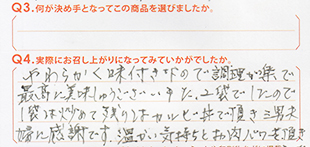 Q3.何が決め手となってこの商品を選びましたか。
Q4.実際にお召し上がりになってみていかがでしたか。
やわらかく味付きなので調理が楽で
最高に美味しゅうございました。2袋でしたので
1袋は炒めて残りはカルビ丼で頂き三男夫
婦に感謝です。温かい気持ちとお肉パワーを頂き